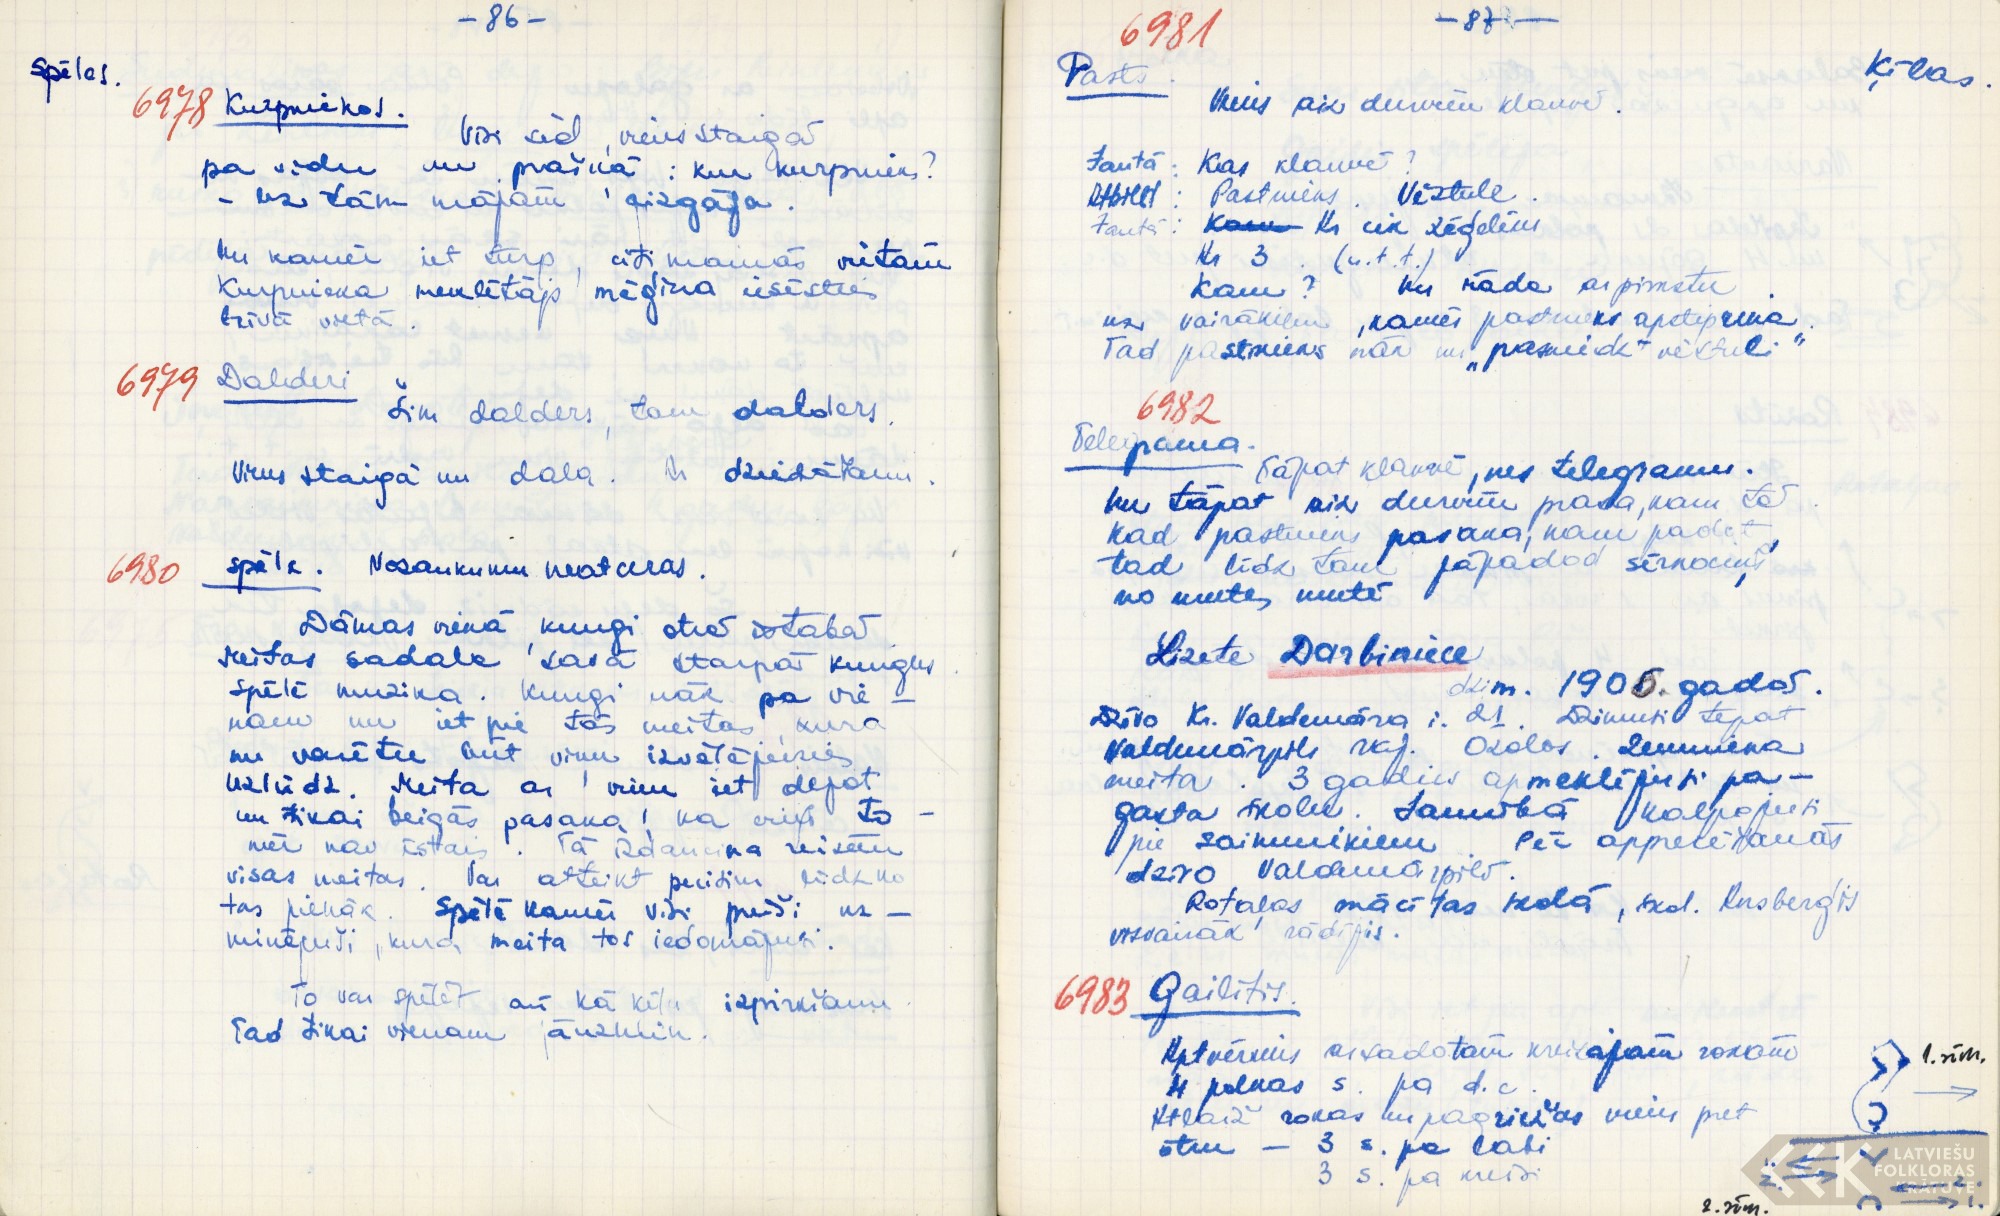 - 86 -
Spēles.
6978 Kurpnieks.
Visi sēd, viens staigā
pa vidu un prašņā: kur kurpnieks?
- uz tām mājām aizgāja.
Un kamēr iet turp, citi mainās vietām
Kurpnieka meklētājs mēģina iesēsties
brīvā vietā.
6979 Dalderi
Šim dalders, tam dalders.
Viens staigā un dala. Ar dziedāšanu.
6980 Spēle. Nosaukumu neatceras.
Dāmas vienā kungi otrā istabā
Meitas sadala savā starpā kungus.
Spēlē muzika. Kungi nāk pa vie-
nam un iet pie tās meitas, kura
nu varētu būt viņu izvēlējusies
Uzlūdz. Meita ar viņu iet dejot
un tikai beigās pasaka, ka viņš to-
mēr nav īstais. Tā izdancina reizēm
visas meitas. Var atteikt puisim līdz no
tas pienāk. Spēlē kamēr visi puiši uz-
minējuši, kura meita tos iedomājusi.
To var spēlēt arī kā ķīlu izpirkšanu.
Tad tikai vienam jāuzmin.
- 87 -
6981
Pasts
Ķīlas.
Viens aiz durvīm klauvē.
Jautā: Kas klauvē?
Atbild: Pastnieks. Vēstule.
Jautā: Kam Ar cik zēģeliem
Ar 3. (u.t.t.)
Kam? Un rāda ar pirkstu
uz vairākiem, kamēr pastnieks apstiprina.
Tad pastnieks nāk un "pasniedz vēstuli"
6982
Telegrama.
Tāpat klauvē, nes telegramu.
Un tāpat aiz durvīm prasa, kam to
Kad pastnieks pasaka, kam padot,
tad līdz tam jāpadod sērkociņš
no mutes mutē
Lizete Darbiniece
dzim. 1906. gadā.
Dzīvo Kr. Valdemāra i. 21. Dzimusi tepat
Valdemārpils raj. Ozolos. Zemnieka
meita. 3 gadus apmeklējusi pa-
gasta skolu. Jaunībā kalpojusi
pie saimniekiem. Pēc apprecēšanās
dzīvo Valdemārpilī.
Rotaļas mācītas skolā, skol. Ansbergis
visvairāk rādījis.
6983 Gailītis.
Aptvērušies aizvadotām kreisajām rokām
4 polkas s. pa d.c.
Atlaiž rokas un pagriežas viens pret
otru - 3 s. pa labi
3 s. pa kreisi
1. zīm.
2. zīm.
1.
2.
2.
1.
LATVIEŠU
FOLKLORAS
KRĀTUVE